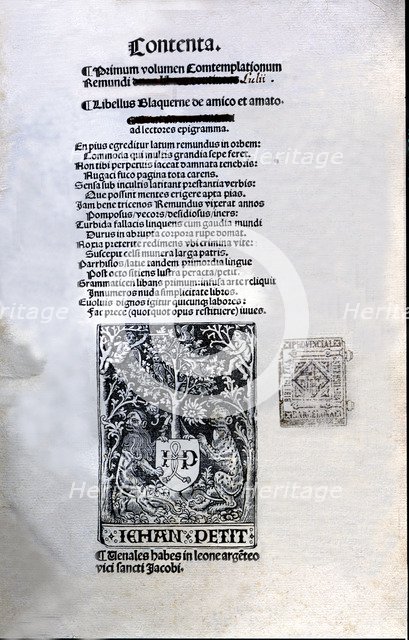 Contenta.
¶Primum volumen Contemplationum
Remundi Lulii
¶Libellus Blaquerne de amico et amato.
ad lectores epigramma.
En pius egreditur latum remundus in orbem:
Commoda qui multis grandia sepe feret.
Non tibi perpetuis iaceat damnata tenebris:
Nugaci fuco pagina tota carens.
Sensa sub incultis latitant prestantia verbis:
Que possint mentes erigere apta pias.
Jam bene tricenos Remundus vixerat annos
Pomposus/vecors/desidiosus/iners:
Turbida fallacis linquens cum gaudia mundi
Durus in abrupta corpora rupe domat.
Noxia preterite redimens vbi crimina vite:
Suscepit celsi munera larga patris.
Parrhisios/latie tandem primordia lingue
Post octo sitiens lustra peracta/petit.
Grammaticen libans primum: infusa arte reliquit
Innumeros nuda simplicitate libros.
Euoluis dignos igitur quicunque labores:
Fac prece (quot quot opus restituere) iuues.
PROVINCIAL
BARCELONA
IP
IEHAN PETIT
¶Uenales habes in leone argẽteo
vici sancti Jacobi.
Heritage
Heritage
Heritage
Heritage
Heritage
Heritage